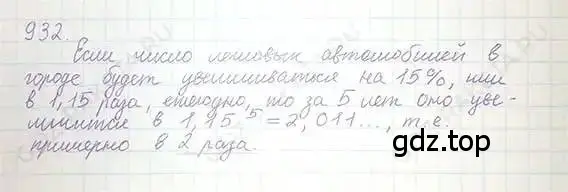 932.
Если число легковых автомобилей в
городе будет увеличиваться на 15%, или
в 1,15 раза, ежегодно, то за 5 лет оно уве-
личится в 1,15⁵ = 2,011..., т.е.
примерно в 2 раза.
gdz.top